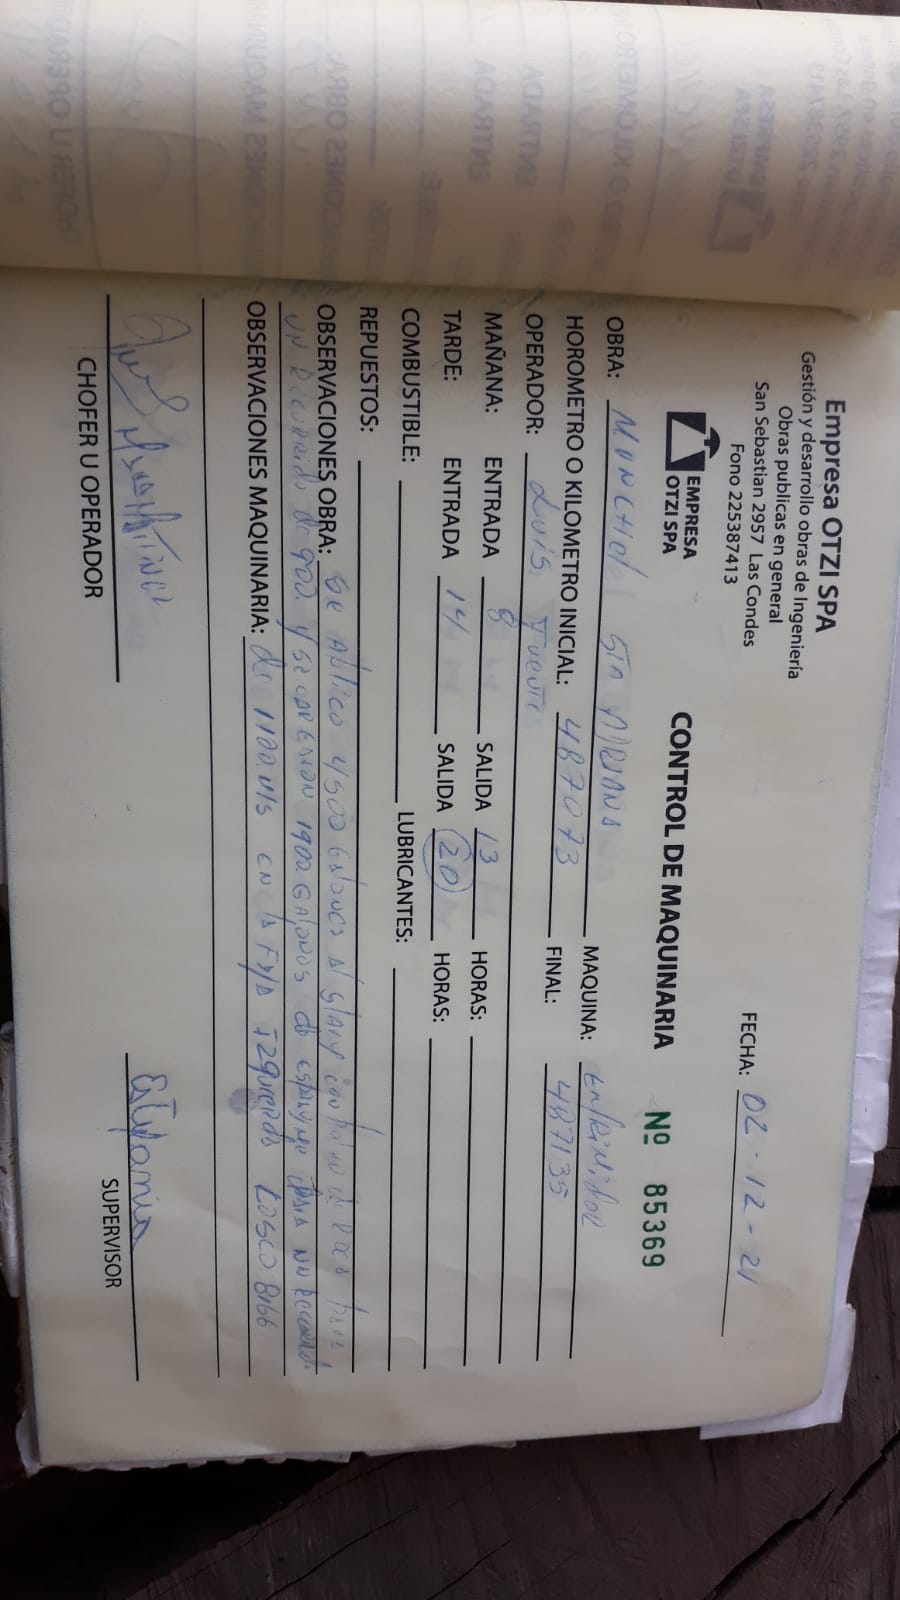 Empresa OTZI SPA
Gestión y desarrollo obras de Ingeniería
Obras publicas en general
San Sebastian 2957 Las Condes
Fono 225387413
FECHA: 02-12-21
EMPRESA
OTZI SPA
CONTROL DE MAQUINARIA Nº 85369
OBRA: STA ADRIANA MAQUINA:
HOROMETRO O KILOMETRO INICIAL: 487073 FINAL: 487135
OPERADOR: Luis Fuente
MAÑANA: ENTRADA 8 SALIDA 13 HORAS:
TARDE: ENTRADA 14 SALIDA 20 HORAS:
COMBUSTIBLE: LUBRICANTES:
REPUESTOS:
OBSERVACIONES OBRA: Se 4500 Galones
UN Recorrido de 900. y se 1900 GALONOS de UN
OBSERVACIONES MAQUINARIA: de 1100 Mts EN la FAJA IZquierda 8166
CHOFER U OPERADOR
SUPERVISOR